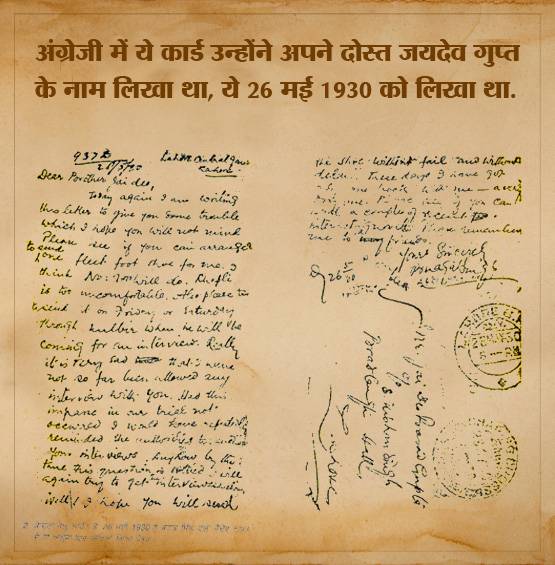 अंग्रेजी में ये कार्ड उन्होंने अपने दोस्त जयदेव गुप्त
के नाम लिखा था, ये 26 मई 1930 को लिखा था.
Lahore Central Gaol
Lahore.
Dear Brother Jai deo,
Today again I am writing
this letter to give you some trouble
which I hope you will not mind
Please see if you can arrange
to send one fleet foot shoe for me. I
think No: will do.
is too uncomfortable. Also please try
to send it on Friday or Saturday
through Kulbir when he will be
coming for an interview. Really
it is very sad that I were
not so far been allowed any
interview with you. Had this
in our case not
occurred I would have repeatedly
reminded the authorities to
your interviews. Anyhow by the
time this question is settled I will
again try to get interview
Well I hope you will send
the shoe without fail and without
delay. These days I have got
only one book with me — a very
dry one. Please see if you can
send a couple of recent
interesting novels. Please remember
me to my friends.
Yours Sincerely
Bhagat Singh
Mr Jai Deo Prasad Gupta
C/o
S. Kishan Singh
Bradlaugh Hall
Lahore